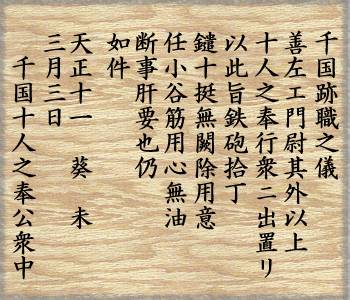 千国跡職之儀
善左エ門尉其外以上
十人之奉行衆ニ出置リ
以此旨鉄砲拾丁
鑓十挺無闕除用意
任小谷筋用心無油
断事肝要也仍
如件
天正十一　葵　未
三月三日
千国十人之奉公衆中